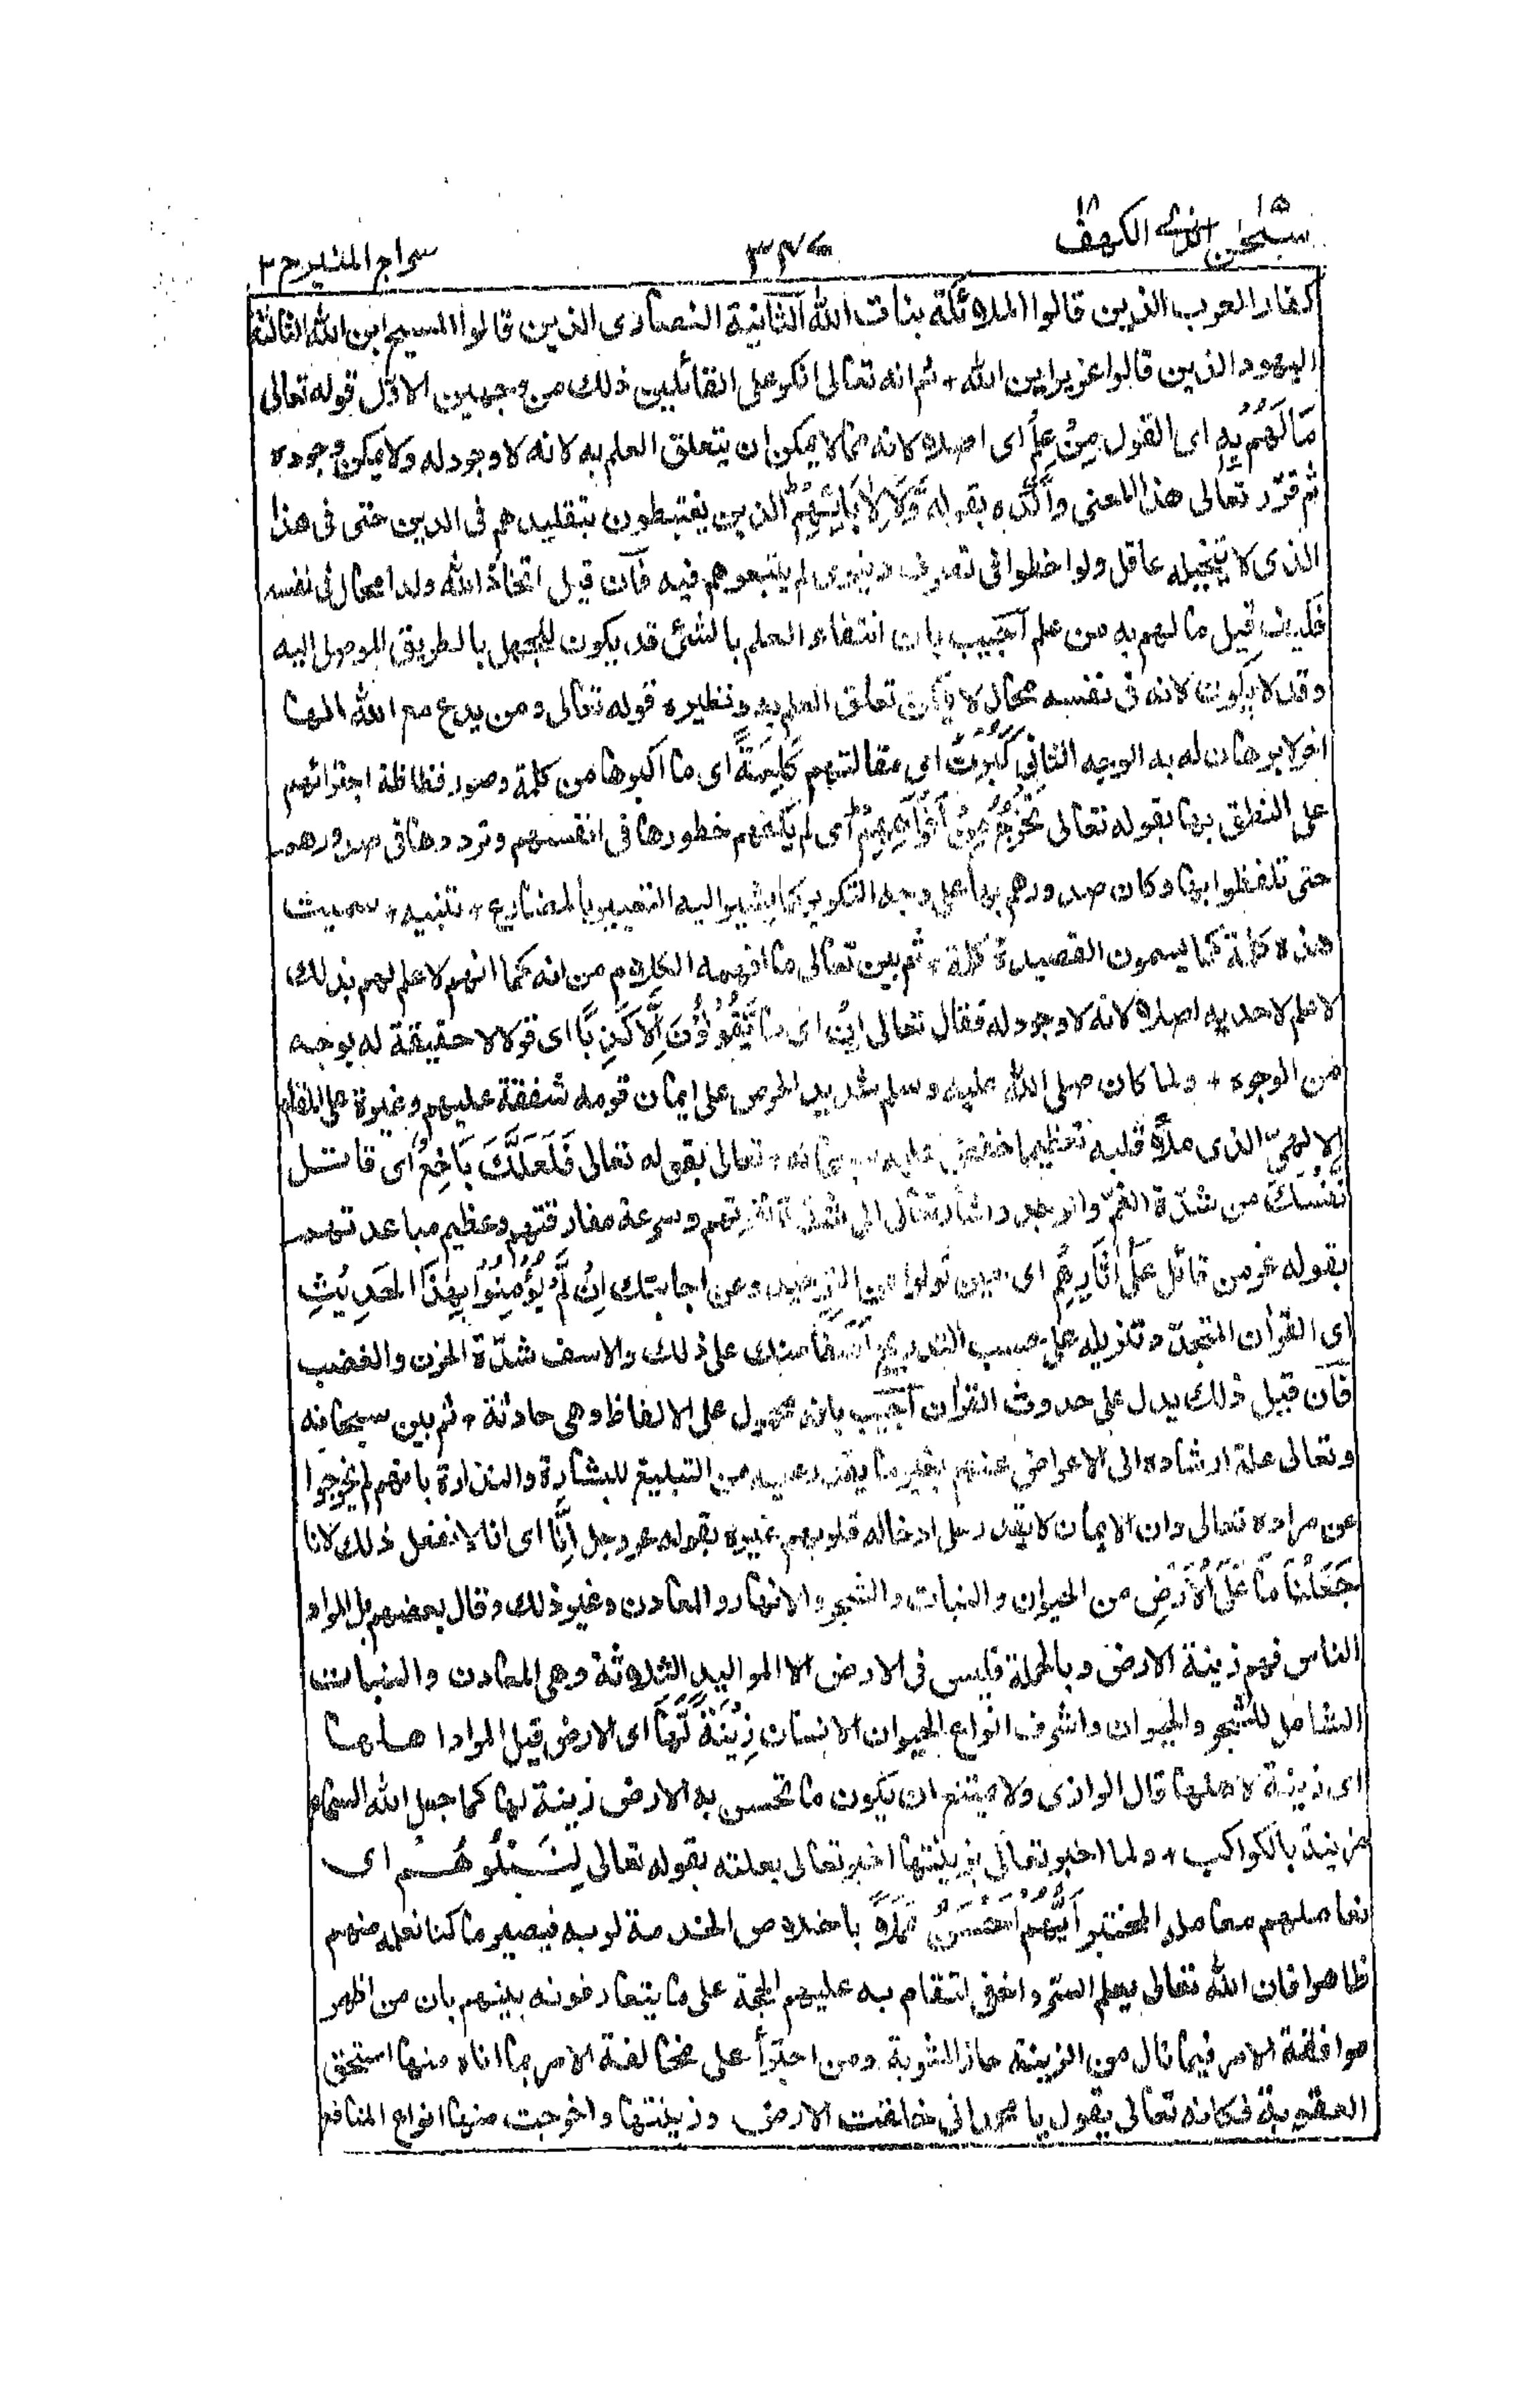 ١٥ سبحٰن الذى الكهف ١٨
٣٤٧
سراج المنير ج ٢
كفار العرب الذين قالوا الملائكة بنات الله الثانية النصارى الذين قالوا المسيح ابن الله الثالثة
اليهود الذين قالوا عزير ابن الله + ثم انه تعالى انكر على القائلين ذلك من وجهين الاوّل قوله تعالى
مَا لَهُمْ بِهٖ اى القول مِنْ عِلْمٍ اى اصلا لانه مما لا يمكن ان يتعلق العلم به لانه لا وجود له ولا يمكن وجوده
ثم قرّر تعالى هذا المعنى واكّده بقوله وَّلَا لِاٰبَآئِهِمْ الذين يغتبطون بتقليدهم فى الدين حتى فى هذا
الذى لا يتخيله عاقل ولو اخطوا فى تصرف دنيوى لم يتبعوهم فيه فان قيل اتخاذ الله ولدا محال فى نفسه
فكيف قيل ما لهم به من علم اجيب بان انتفاء العلم بالشئ قد يكون للجهل بالطريق الموصل اليه
وقد لا يكون لانه فى نفسه محال لا يمكن تعلق العلم به ونظيره قوله تعالى ومن يدع مع الله الها
اخر لا برهان له به الوجه الثانى كَبُرَتْ اى مقالتهم كَلِمَةً اى ما اكبرها من كلمة وصور فظاظة اجترائهم
على النطق بها بقوله تعالى تَخْرُجُ مِنْ اَفْوَاهِهِمْ اى لم يكفهم خطورها فى انفسهم وترددها فى صدورهم
حتى تلفظوا بها وكان صدورهم بها على وجه التكرير كما يشير اليه التعبير بالمضارع + تنبيه + سميت
هذه كلمة كما يسمون القصيدة كلمة + ثم بين تعالى ما افهمه الكلام من انه كما انهم لا علم لهم بذلك
لا علم لاحد به اصلا لانه لا وجود له فقال تعالى اِنْ اى ما يَّقُوْلُوْنَ اِلَّا كَذِبًا اى قولا لا حقيقة له بوجه
من الوجوه + ولما كان صلى الله عليه وسلم شديد الحرص على ايمان قومه شفقة عليهم وغيرة على المقام
الالهىّ الذى ملأ قلبه تعظيما خفض عليه سبحانه وتعالى بقوله تعالى فَلَعَلَّكَ بَاخِعٌ اى قاتل
نَّفْسَكَ من شدّة الغمّ والوجد واشار تعالى الى شدّة نفرتهم وسرعة مفارقتهم وعظيم مباعدتهم
بقوله عز من قائل عَلٰٓى اٰثَارِهِمْ اى حين تولوا عن التوحيد وعن اجابتك اِنْ لَّمْ يُؤْمِنُوْا بِهٰذَا الْحَدِيْثِ
اى القراٰن المتجدّد تنزيله على حسب التدريج اَسَفًا منك على ذلك والاسف شدّة الحزن والغضب
فان قيل ذلك يدل على حدوث القراٰن اجيب بانه محمول على الالفاظ وهى حادثة + ثم بين سبحانه
وتعالى علة ارشاده الى الاعراض عنهم بغير ما يقدر عليه من التبليغ للبشارة والنذارة بانهم لم يخرجوا
عن مراده تعالى وان الايمان لا يقدر على ادخاله قلوبهم غيره بقوله عز وجل اِنَّا اى انا لا نفعل ذلك لانا
جَعَلْنَا مَا عَلَى الْاَرْضِ من الحيوان والنبات والشجر والانهار والمعادن وغير ذلك وقال بعضهم بل المراد
الناس فهم زينة الارض وبالجملة فليس فى الارض الا المواليد الثلاثة وهى المعادن والنبات
الشامل للشجر والحيوان واشرف انواع الحيوان الانسان زِيْنَةً لَّهَا اى الارض قيل المراد اهلها
اى زينة لاهلها قال الرازى ولا يمتنع ان يكون ما تحسن به الارض زينة لها كما جعل الله السماء
مزينة بالكواكب + ولما اخبر تعالى بزينتها اخبر تعالى بعلته بقوله تعالى لِنَبْلُوَهُمْ اى
نعاملهم معاملة المختبر اَيُّهُمْ اَحْسَنُ عَمَلًا باخلاص الخدمة لربه فيصير ما كنا نعلمه منهم
ظاهرا فان الله تعالى يعلم السر واخفى لتقام به عليهم الحجة على ما يتعارفونه بينهم بان من اظهر
موافقة الامر فيما نال من الزينة حاز المثوبة ومن اجترأ على مخالفة الامر بما اتاه منها استحق
العقوبة فكانه تعالى يقول يا محمد انى خلقت الارض وزينتها واخرجت منها انواع المنافع